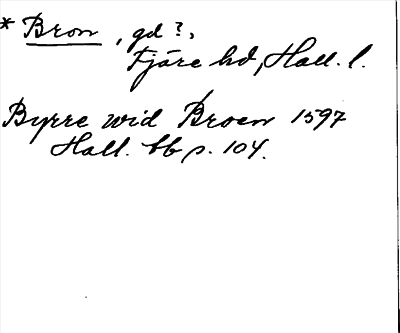 * Bron, gd ?,
Fjäre hd, Hall. l.
Byrre wid Broen 1597
Hall. bb p. 104.